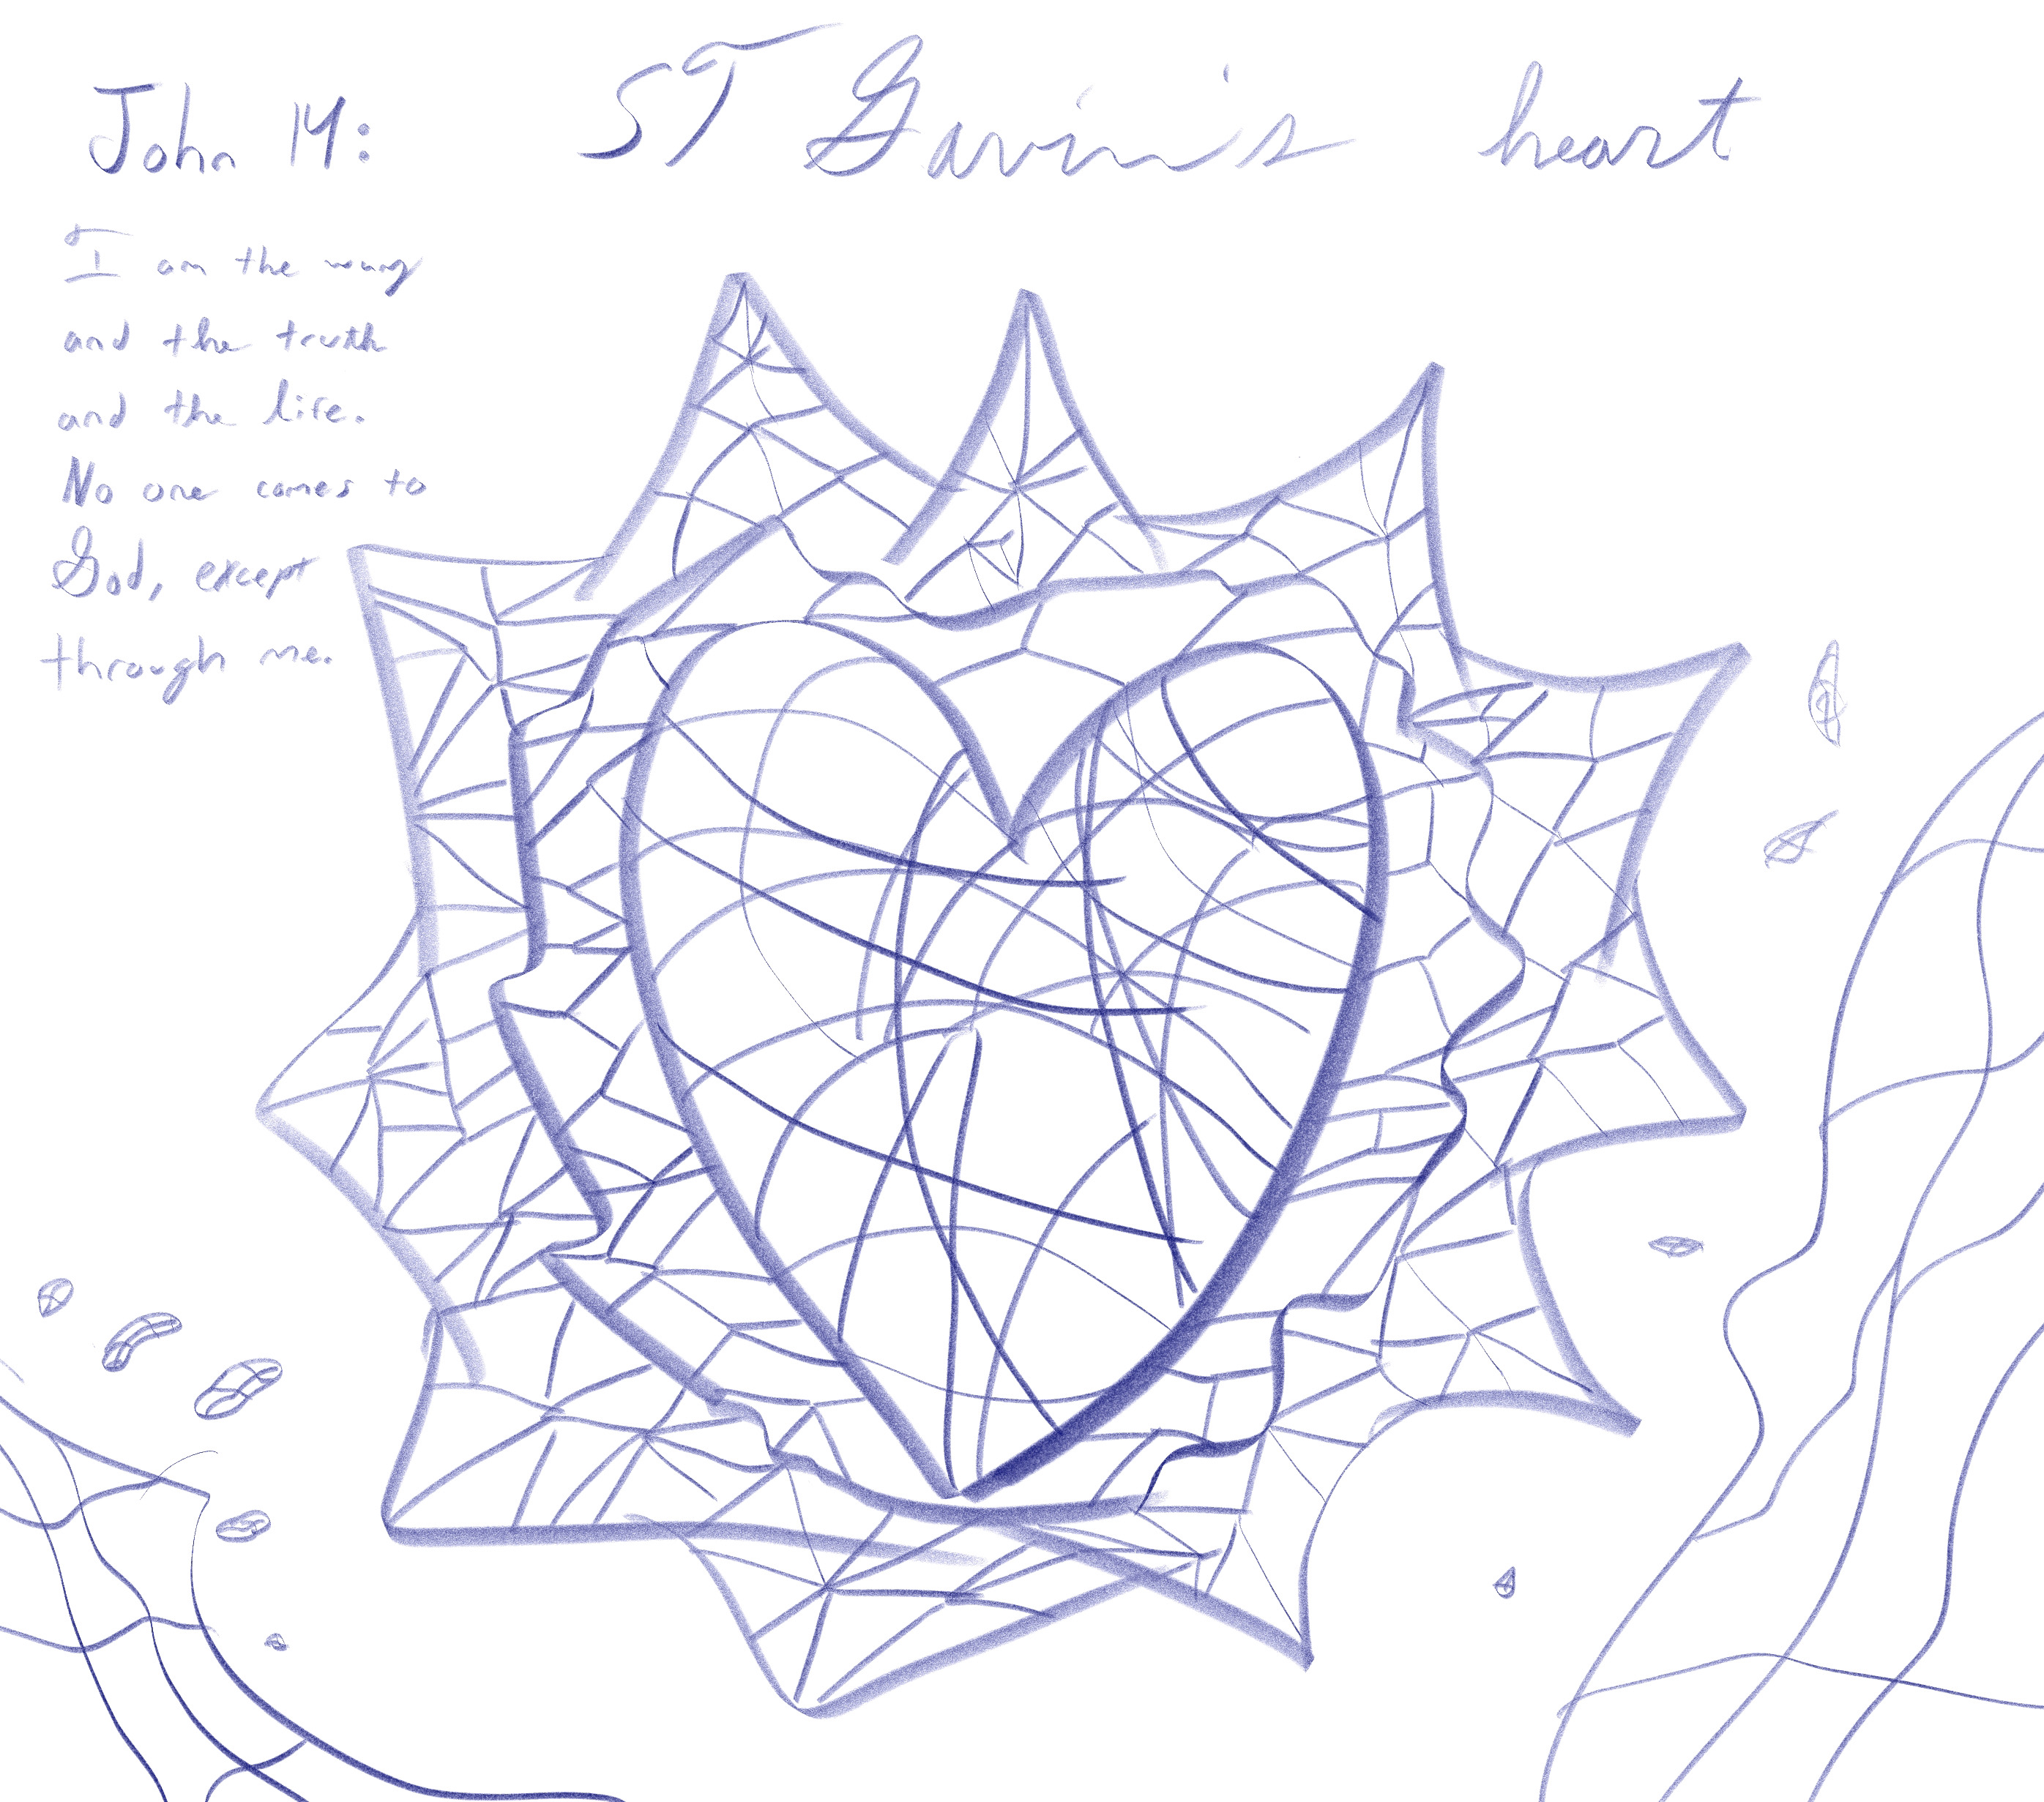 ST Gavin's heart
John 14:
I am the way
and the truth
and the life.
No one comes to
God, except
through me.